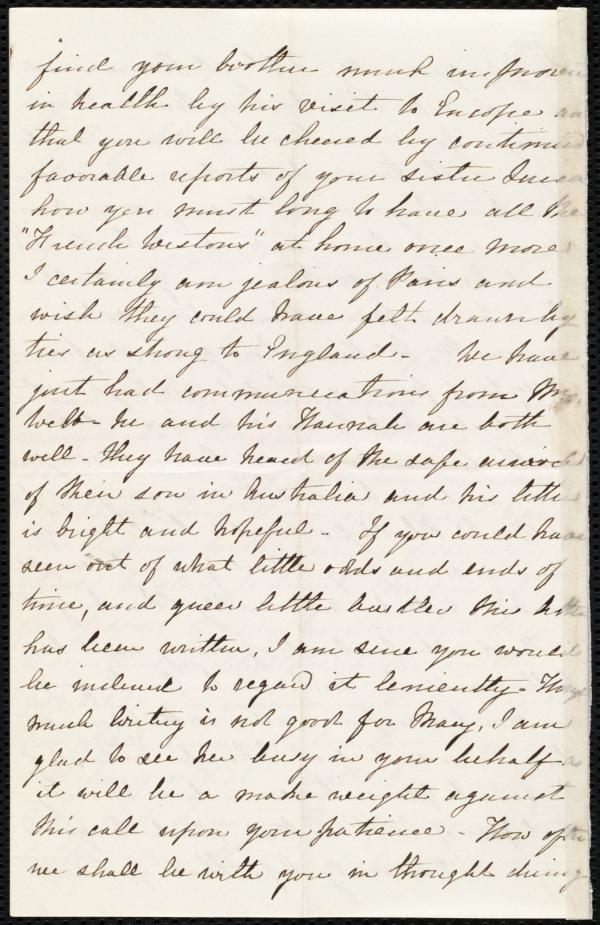 find your brother much improved
in health by his visit to Europe an
that you will be cheered by continued
favorable reports of your sister
how you must long to have all the
"French Westons" at home once more
I certainly am jealous of Paris and
wish they could have felt drawn by
ties as strong to England - We have
just had communications from Mr.
Webb - he and his Hannah are both
well - they have heard of the safe arrival
of their son in Australia and his letter
is bright and hopeful - If you could have
seen out of what little odds and ends of
time, and queer little bustles this letter
has been written, I am sure you would
be inclined to regard it leniently - Though
much writing is not good for Mary, I am
glad to see her busy in your behalf as
it will be a make weight against
this call upon your patience - How often
we shall be with you in thought during